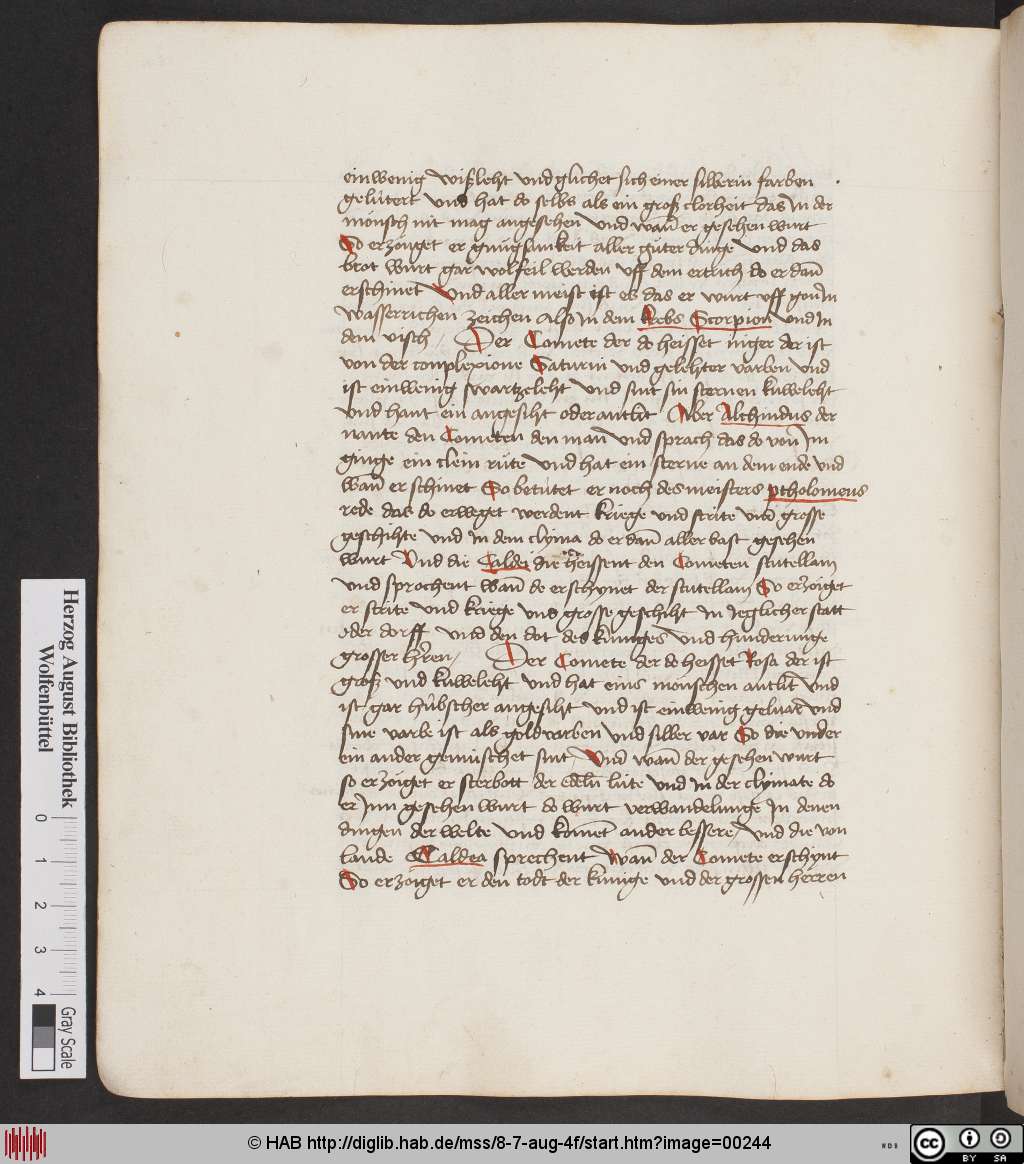 ein wenig wißleht vnd glichet sich einer silberin farben
gelútert vnd hat do selbs als ein groß clorheit das In der
mönsch nit mag angesehen vnd wañ er gesehen wurt
So erzöuget er gnúgsamkeit aller gúter dinge vnd das
brot wurt gar wolfeil werden vff dem ertrich do er dañ
erschinet Vnd aller meist ist es das er wurt vff gon In
wasserrichen zeichen Also In dem krebs Scorpion vnd In
dem visch / Der Comete der do heisset niger der ist
von der conplexione Saturni vnd gelehter varben vnd
ist ein wenig swartzeleht vnd sint sin sternen kuweleht
vnd hant ein angesiht oder antlit Aber Alchindus der
nante den Cometen den man vnd sprach das do von Im
ginge ein clein rúte vnd hat ein sterne an dem ende vnd
wañ er schinet So betútet er noch des meisters ptholomeus
rede das do erweget werdent kriege vnd strite vnd grosse
geschihte vnd In dem clyma do er dañ aller bast gesehen
wurt Vnd die Caldei die heissent den Cometen scutellam
vnd sprochent wañ de erschynet der scutellam So erzöiget
er strite vnd kriege vnd grosse geschiht In Jeglicher statt
oder dorff vnd den dot des kúniges vnd hinderunge
grosser h'ren / Der Comete der do heisset Rosa der ist
groß vnd kuweleht vnd hat eins mönschen antlit vnd
ist gar húbscher angesiht vnd ist ein wenig geluar vnd
sine varbe ist als gold varben vnd silber var So die vnder
ein ander gemischet sint Vnd wañ der gesehen wurt
so erzöiget er sterbott der edeln lúte vnd In der clymate do
er Inn gesehen wurt do wurt verwandelunge In denen
dingen der welte vnd koment ander bessere / vnd die von
lande Caldea sprechent wañ der Comete erschynt
So erzöiget er den todt der kúnige vnd der grossen herren
Herzog August Bibliothek
Wolfenbüttel
0 1 2 3 4
Gray Scale
© HAB http://diglib.hab.de/mss/8-7-aug-4f/start.htm?image=00244
WDB
cc BY SA